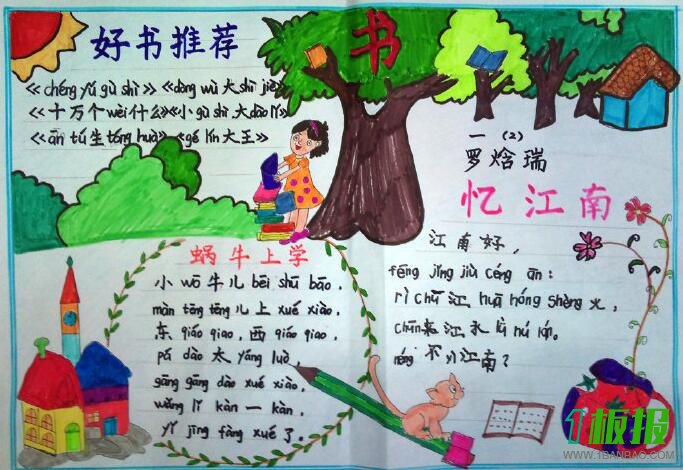 好书推荐
《chéng yǔ gù shì》《dòng wù 大 shì jiè》
《十万个 wèi 什么》《小 gù shì 大 dào lǐ》
《ān tú 生 tóng huà》《gé lín 大王》
书
一 (2)
罗焓瑞
忆江南
江南好，
fēng jǐng jiù céng ān：
rì chū 江 huā hóng shèng 火，
chūn 来江水 lǜ rú lán。
néng 不 江南？
蜗牛上学
小 wō 牛儿 bēi shū bāo，
màn tēng tēng 儿上 xué xiào，
东 qiáo qiao，西 qiáo qiao，
pá dào 太 yáng luò，
gāng gāng dào xué xiào，
wǎng lǐ kàn 一 kàn，
yǐ jīng fàng xué 了。
1板报
WWW.1BANBAO.COM